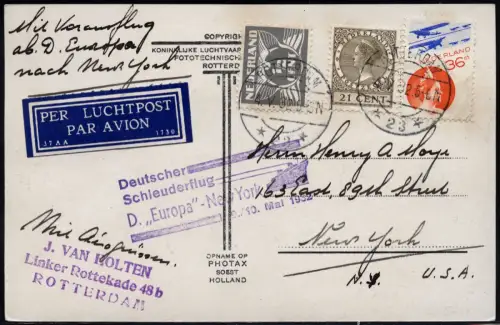 Mit Vorausflug
ab. D. Europa
nach New York
COPYRIGHT
KONINKLIJKE LUCHTVAAR
FOTOTECHNISCHE
ROTTERD
NEDERLAND
21 CENT
RLAND
36
23
PER LUCHTPOST
PAR AVION
37AA
1750
Deutscher
Schleuderflug
D. „Europa"-New York
/10. Mai 1932
Herrn Henry A. Meyer
163 East, 89th Street
New York
N.Y. U.S.A.
Mit
J. VAN HOLTEN
Linker Rottekade 48b
ROTTERDAM
OPNAME OP
PHOTAX
SOEST
HOLLAND